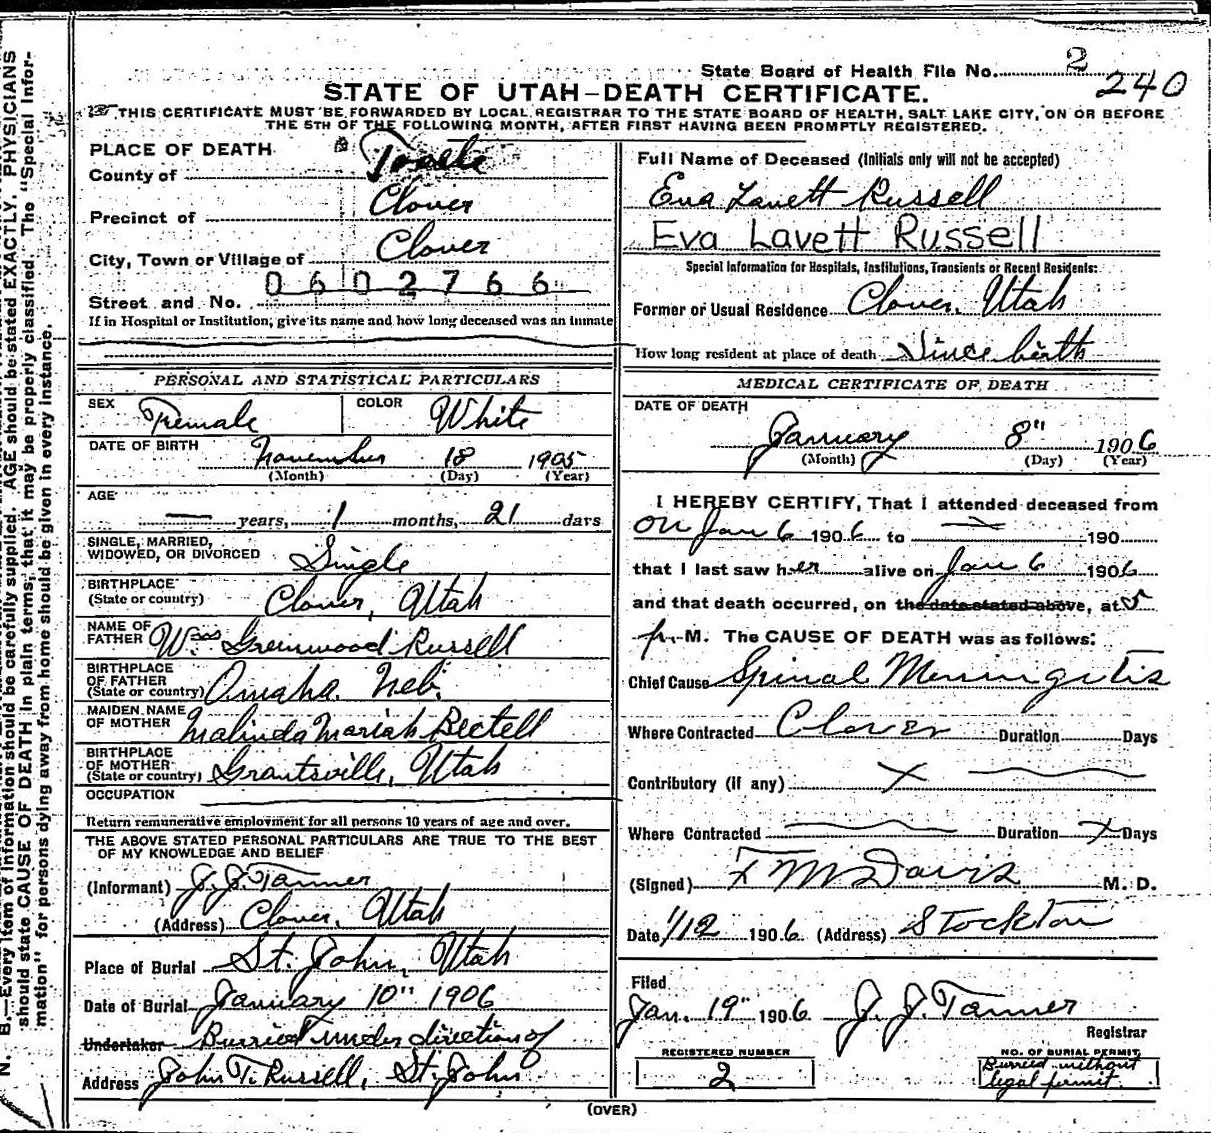 State Board of Health File No. 2
240
STATE OF UTAH—DEATH CERTIFICATE.
THIS CERTIFICATE MUST BE FORWARDED BY LOCAL REGISTRAR TO THE STATE BOARD OF HEALTH, SALT LAKE CITY, ON OR BEFORE
THE 5TH OF THE FOLLOWING MONTH, AFTER FIRST HAVING BEEN PROMPTLY REGISTERED.
PLACE OF DEATH
County of Tooele
Precinct of Clover
City, Town or Village of Clover
0602766
Street and No.
If in Hospital or Institution, give its name and how long deceased was an inmate
Full Name of Deceased (Initials only will not be accepted)
Eva Lavett Russell
Eva Lavett Russell
Special Information for Hospitals, Institutions, Transients or Recent Residents:
Former or Usual Residence Clover, Utah
How long resident at place of death Since birth
PERSONAL AND STATISTICAL PARTICULARS
SEX Female COLOR White
DATE OF BIRTH November 18 1905
(Month) (Day) (Year)
AGE
— years, 1 months, 21 days
SINGLE, MARRIED,
WIDOWED, OR DIVORCED Single
BIRTHPLACE
(State or country) Clover, Utah
NAME OF
FATHER Wm. Greenwood Russell
BIRTHPLACE
OF FATHER
(State or country) Omaha. Neb.
MAIDEN NAME
OF MOTHER Malinda Mariah Bectell
BIRTHPLACE
OF MOTHER
(State or country) Grantsville, Utah
OCCUPATION
Return remunerative employment for all persons 10 years of age and over.
THE ABOVE STATED PERSONAL PARTICULARS ARE TRUE TO THE BEST
OF MY KNOWLEDGE AND BELIEF
(Informant) J. J. Tanner
(Address) Clover, Utah
Place of Burial St. John, Utah
Date of Burial January 10" 1906
Undertaker Burried under direction of
Address John T. Russell, St. John
MEDICAL CERTIFICATE OF DEATH
DATE OF DEATH
January 8" 1906
(Month) (Day) (Year)
I HEREBY CERTIFY, That I attended deceased from
on Jan 6 1906 to — 190
that I last saw her alive on Jan 6 1906
and that death occurred, on the date stated above, at 5
p. M. The CAUSE OF DEATH was as follows:
Chief Cause Spinal Meningitis
Where Contracted Clover Duration Days
Contributory (if any) X
Where Contracted Duration X Days
(Signed) F M Davis M. D.
Date 1/12 1906 (Address) Stockton
Filed
Jan. 19" 1906 J. J. Tanner
Registrar
REGISTERED NUMBER
2
NO. OF BURIAL PERMIT
Burried without
legal permit.
(OVER)
N. B.—Every item of information should be carefully supplied. AGE should be stated EXACTLY. PHYSICIANS
should state CAUSE OF DEATH in plain terms, that it may be properly classified. The "Special Infor-
mation" for persons dying away from home should be given in every instance.